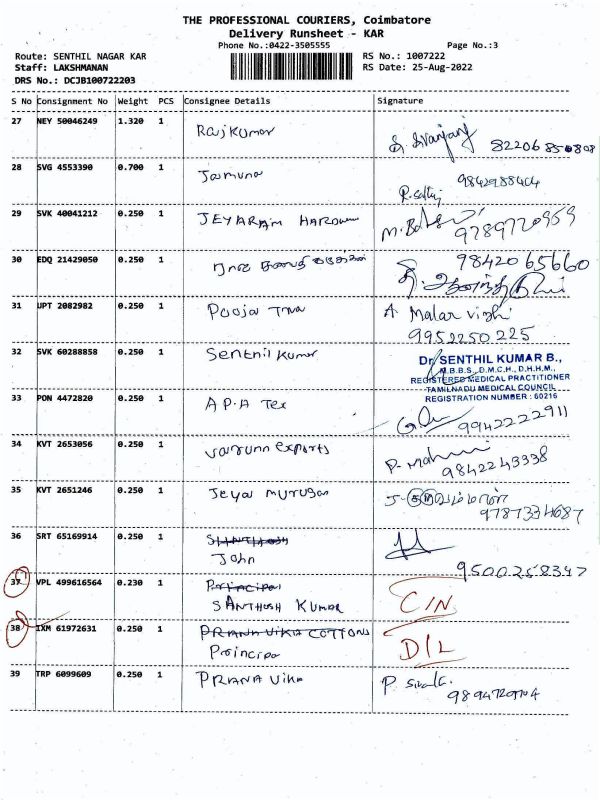 THE PROFESSIONAL COURIERS, Coimbatore
Delivery Runsheet - KAR
Phone No.:0422-3505555 Page No.:3
Route: SENTHIL NAGAR KAR RS No.: 1007222
Staff: LAKSHMANAN RS Date: 25-Aug-2022
DRS No.: DCJB100722203
S No Consignment No Weight PCS Consignee Details Signature
27 NEY 50046249 1.320 1 Rajkumar 82206850808
28 SVG 4553390 0.700 1 Jamuna 9842988404
29 SVK 40041212 0.250 1 JEYARAM 9789720959
30 EDQ 21429050 0.250 1 9842065660
31 UPT 2082982 0.250 1 Pooja A Malar vizhi
9952250225
32 SVK 60288858 0.250 1 Senthil Kumar Dr. SENTHIL KUMAR B.,
M.B.B.S., D.M.C.H., D.H.H.M.,
REGISTERED MEDICAL PRACTITIONER
TAMILNADU MEDICAL COUNCIL
REGISTRATION NUMBER : 60216
33 PON 4472820 0.250 1 A P.A Tex 9942222911
34 KVT 2653056 0.250 1 Varunn exports 9842243338
35 KVT 2651246 0.250 1 Jeya murugan 9787334687
36 SRT 65169914 0.250 1
John 9500258347
37 VPL 499616564 0.230 1 Principal
SANTHOSH KUMAR C/N
38 IXM 61972631 0.250 1 PRANA VIKA COTTONS
Principal D/L
39 TRP 6099609 0.250 1 PRANA Vika 9894729704